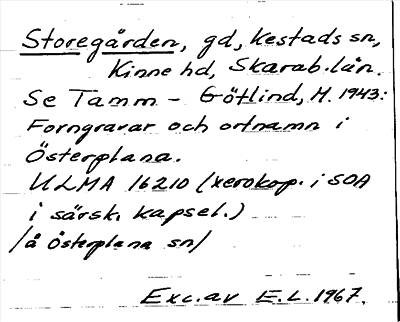 Storegården, gd, Kestads sn,
Kinne hd, Skarab. län.
Se Tamm - Götlind, M. 1943:
Forngravar och ortnamn i
Österplana.
ULMA 16210 (xerokop. i SOA
i särsk. kapsel.)
/å Österplana sn/
Exc. av E.L. 1967.